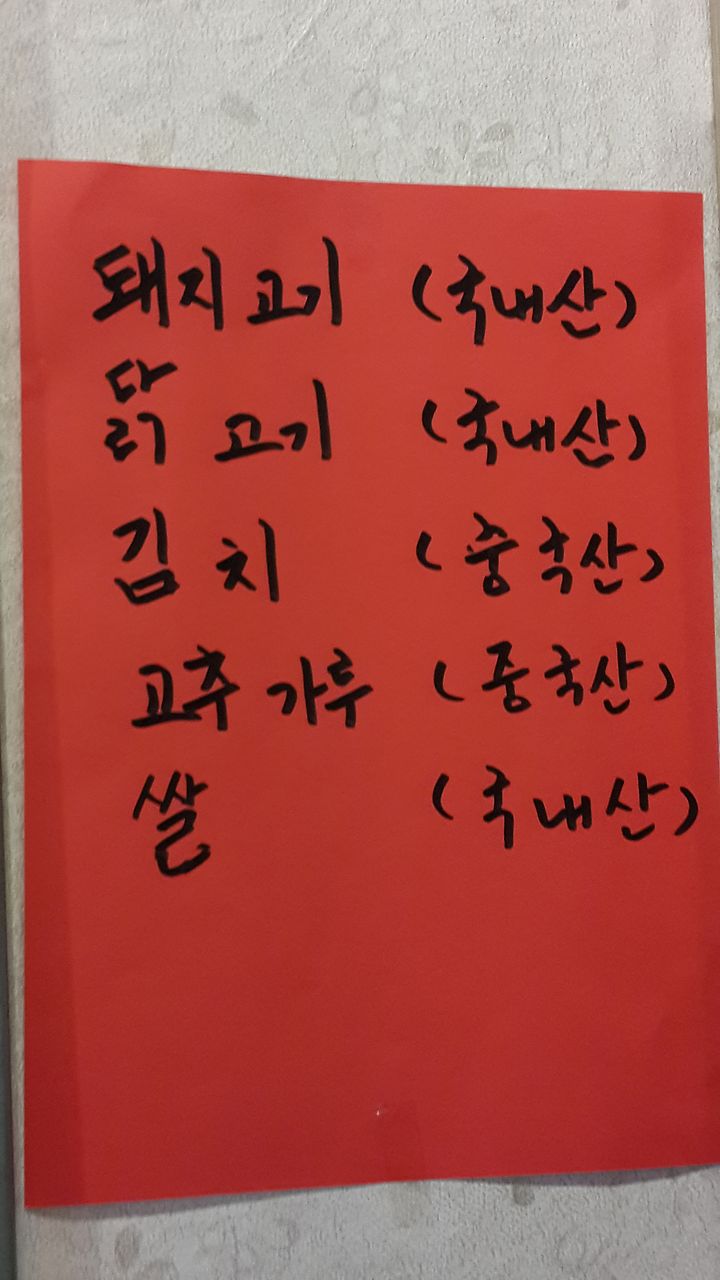 돼지고기 (국내산)
닭고기 (국내산)
김치 (중국산)
고추가루 (중국산)
쌀 (국내산)